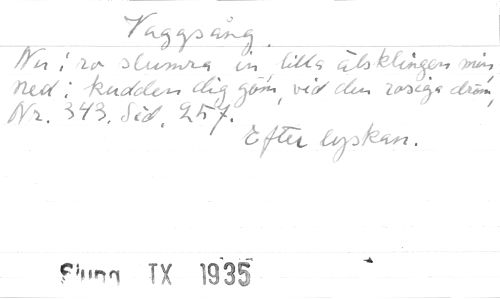 Vaggsång.
Nu i ro slumra in, lilla älsklingen min
ned i kudden dig göm, vid den rosiga dröm,
Nr. 343. Sid. 257.
Efter tyskan.
Sjung TX 1935